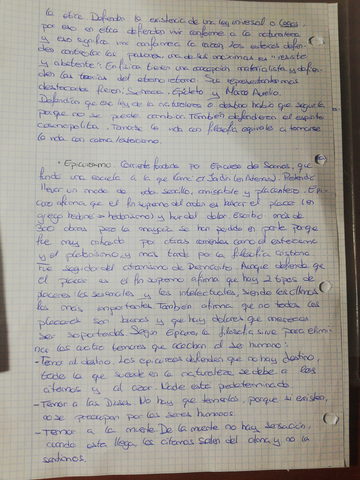 la ética. Defienden la existencia de una ley universal o Logos,
por eso en ética defienden vivir conforme a la naturaleza
y eso significa vivir conforme a la razón. Los estoicos defien-
den controlar las pasiones, una de sus máximas es "resiste
y abstente". En física tienen una concepción materialista y defien-
den las teorías del eterno retorno. Sus representantes más
destacados fueron, Séneca, Epicteto y Marco Aurelio.
Defendían que esa ley de la naturaleza o destino había que seguirla
porque no se puede cambiar. También defendieron el espíritu
cosmopolita. Tomarse la vida con filosofía equivale a tomarse
la vida con como estoicismo.
• Epicureísmo. Corriente fundada por Epicuro de Samos, que
fundó una escuela a la que llamó el Jardín (en Atenas). Pretendía
llevar un modo de vida sencillo, amigable y placentero. Epi-
curo afirma que el fin supremo del ser es buscar el placer (en
griego hedoné = hedonismo) y huir del dolor. Escribió más de
300 obras pero la mayoría se han perdido en parte porque
fue muy criticado por otras corrientes como el estoicismo
y el platonismo, y más tarde por la filosofía cristiana.
Fue seguidor del atomismo de Demócrito. Aunque defiende que
el placer es el fin supremo afirma que hay 2 tipos de
placeres: los sensoriales y los intelectuales siendo los últimos
los más importantes. También afirma que no todos los
placeres son buenos y que hay dolores que merecen
ser soportados. Según Epicuro, la filosofía sirve para elimi-
nar los cuatro temores que acechan al ser humano:
- Temor al destino. Los epicúreos defienden que no hay destino,
todo lo que sucede en la naturaleza se debe a los
átomos y al azar. Nada está predeterminado.
- Temor a los Dioses. No hay que temerlos, porque si existen,
no se preocupan por los seres humanos.
- Temor a la muerte. De la muerte no hay sensación,
cuando esta llega, los átomos salen del alma y no la
sentimos.